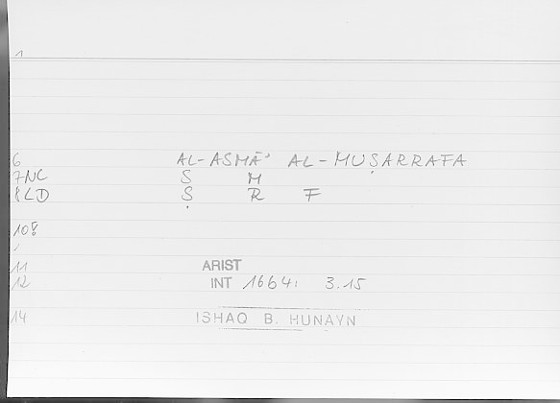 1
6 AL-ASMĀʾ AL-MUṢARRAFA
7NC S M
8LD Ṣ R F
10
11 ARIST
12 INT 1664: 3.15
14 ISHAQ B. HUNAYN